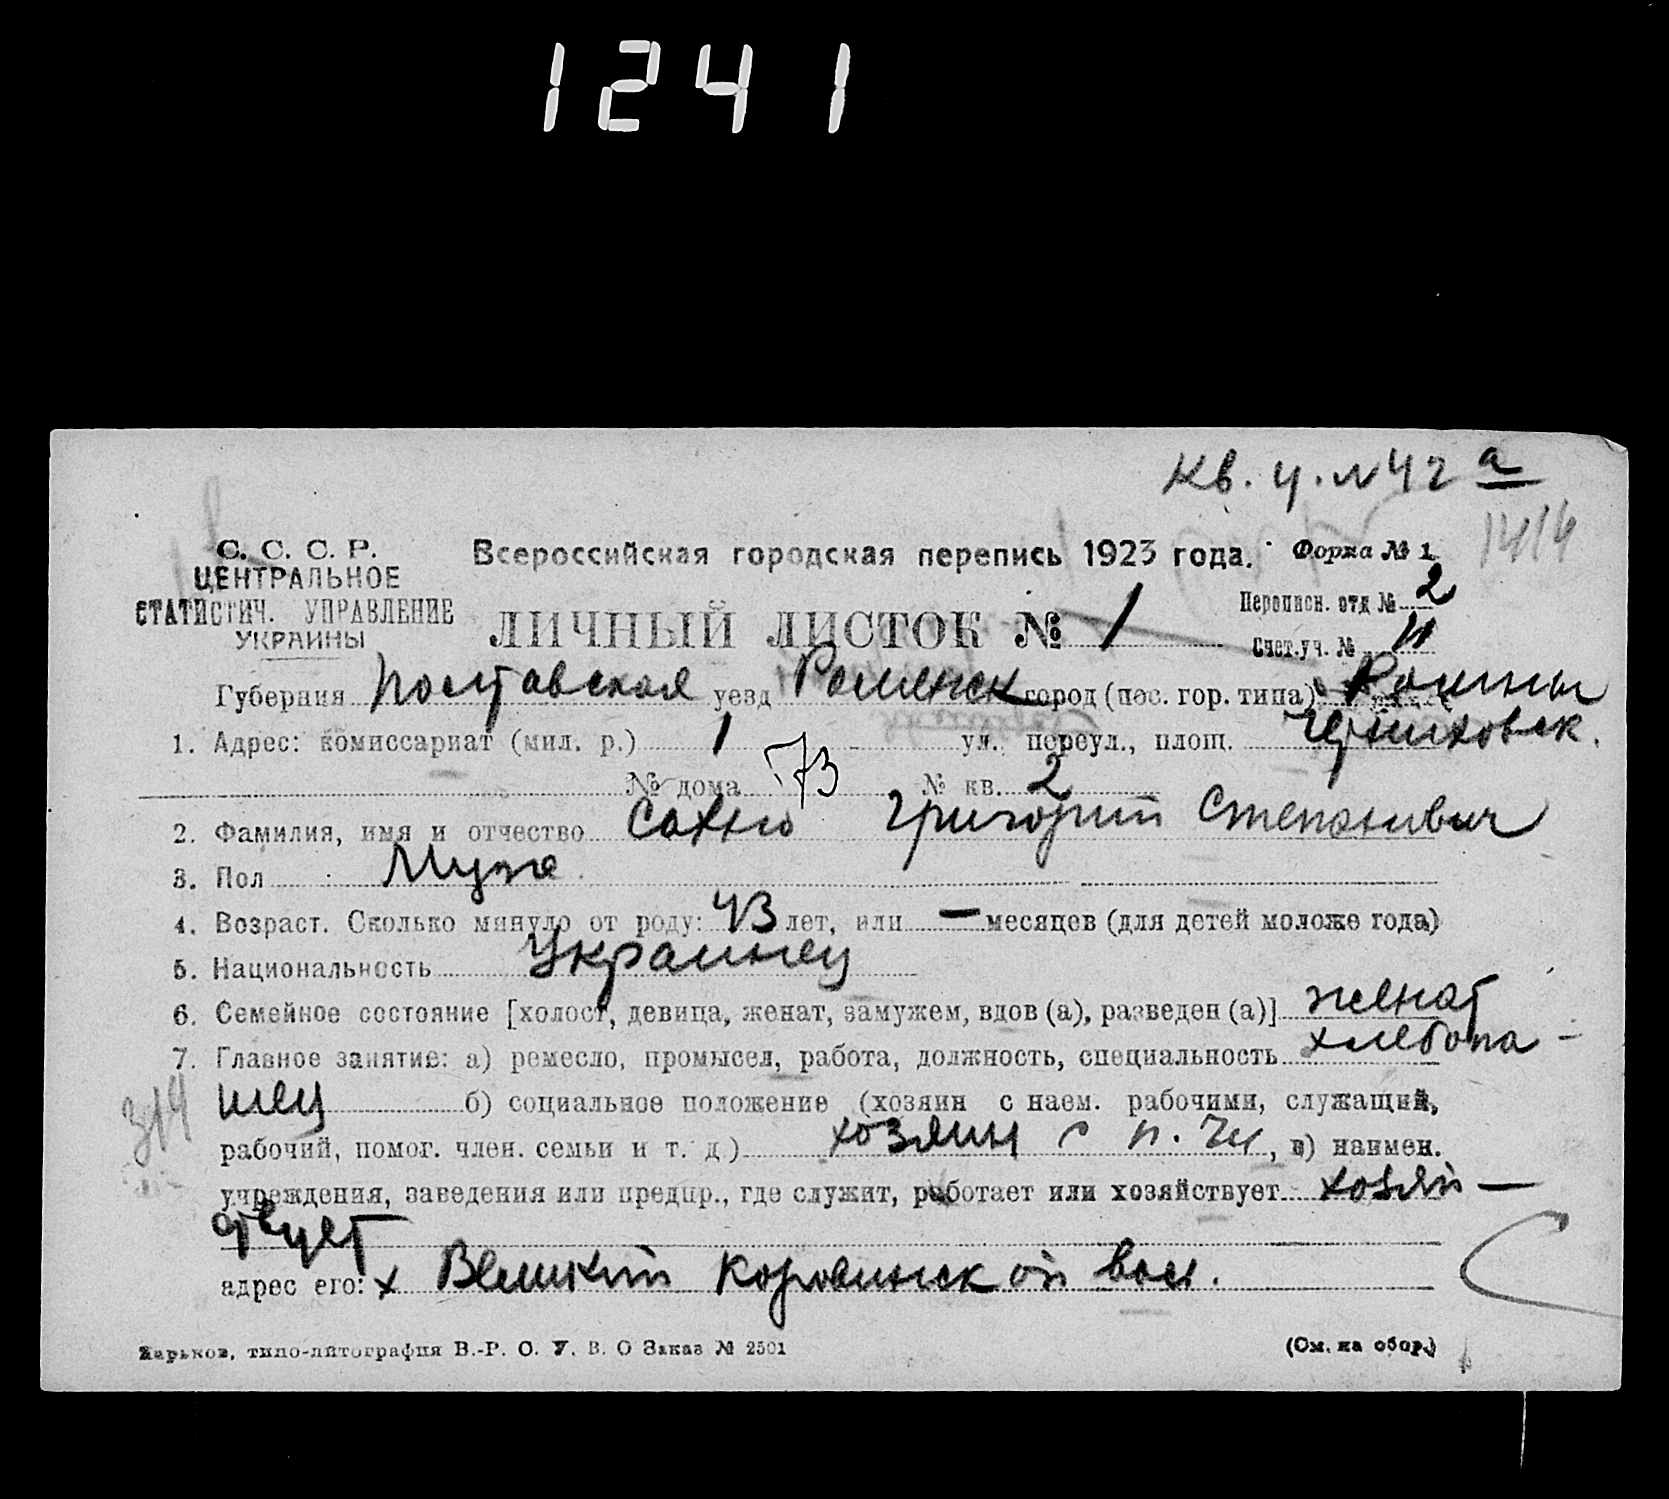 1241
Кв. у. №42 а
1414
С. С. С. Р.
ЦЕНТРАЛЬНОЕ
СТАТИСТИЧ. УПРАВЛЕНИЕ
УКРАИНЫ
Всероссийская городская перепись 1923 года. Форма № 1
ЛИЧНЫЙ ЛИСТОК № 1
Переписн. отд № 2
Счет.уч. № 11
Губерния Полтавская уезд Роменск город (пос. гор. типа) Ромны
1. Адрес: комиссариат (мил. р.) 1 ул., переул., площ. Черниховск.
№ дома 73 № кв. 2
2. Фамилия, имя и отчество Сахно Григорий Степанивич
3. Пол Муж
4. Возраст. Сколько минуло от роду: 43 лет, или — месяцев (для детей моложе года)
5. Национальность Украинец
6. Семейное состояние [холост, девица, женат, замужем, вдов (а), разведен (а)] женат
7. Главное занятие: а) ремесло, промысел, работа, должность, специальность хлебопа-
314
шец б) социальное положение (хозяин с наем. рабочими, служащий,
рабочий, помог. член. семьи и т. д.) хозяин с п. , в) наимен.
учреждения, заведения или предпр., где служит, работает или хозяйствует хозяй—
ствует
адрес его: х Коровинской вол.
Харьков, типо-литография В.-Р. О. У. В. О Заказ № 2501
(См. на обор.)